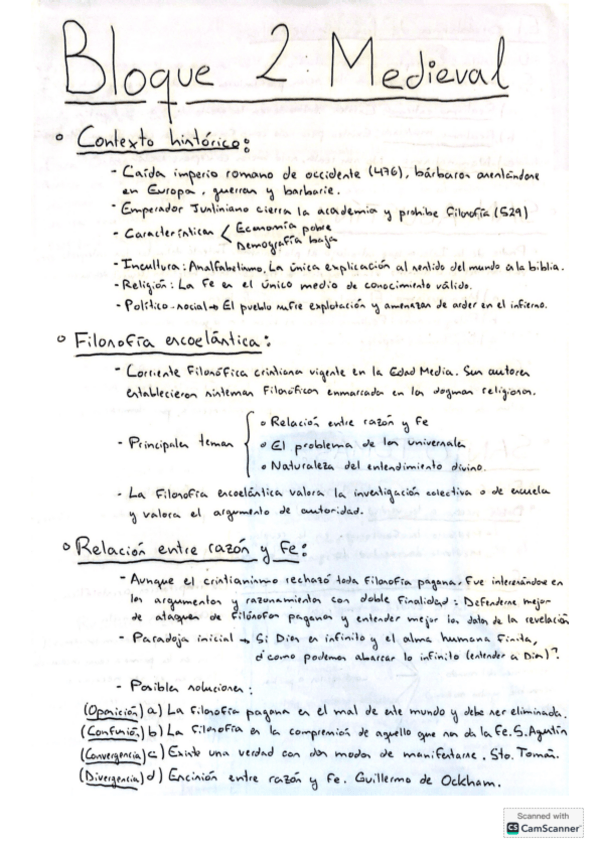 Bloque 2: Medieval
Contexto histórico:
- Caída imperio romano de occidente (476), bárbaros asentándose
en Europa, guerras y barbarie.
- Emperador Justiniano cierra la academia y prohibe Filosofía (529)
- Características < Economía pobre
Demografía baja
- Incultura: Analfabetismo. La única explicación al sentido del mundo es la biblia.
- Religión: La Fe es el único medio de conocimiento válido.
- Político-social → El pueblo sufre explotación y amenazas de arder en el infierno.
Filosofía escoelástica:
- Corriente Filosófica cristiana vigente en la Edad Media. Sus autores
establecieron sistemas Filosóficos enmarcada en los dogmas religiosos.
- Principales temas
Relación entre razón y Fe
El problema de los universales
Naturaleza del entendimiento divino.
- La Filosofía escoelástica valora la investigación colectiva o de escuela
y valora el argumento de autoridad.
Relación entre razón y Fe:
- Aunque el cristianismo rechazó toda Filosofía pagana. Fue interesándose en
los argumentos y razonamientos con doble finalidad: Defenderse mejor
de ataques de Filósofos paganos y entender mejor los datos de la revelación
- Paradoja inicial → Si Dios es infinito y el alma humana Finita,
¿como podemos abarcar lo infinito (entender a Dios)?
- Posibles soluciones:
(Oposición) a) La Filosofía pagana es el mal de este mundo y debe ser eliminada.
(Confusión) b) La Filosofía es la comprensión de aquello que nos da la Fe. S. Agustín
(Convergencia) c) Existe una verdad con dos modos de manifestarse. Sto. Tomás.
(Divergencia) d) Encisión entre razón y Fe. Guillermo de Ockham.
Scanned with
CS CamScanner